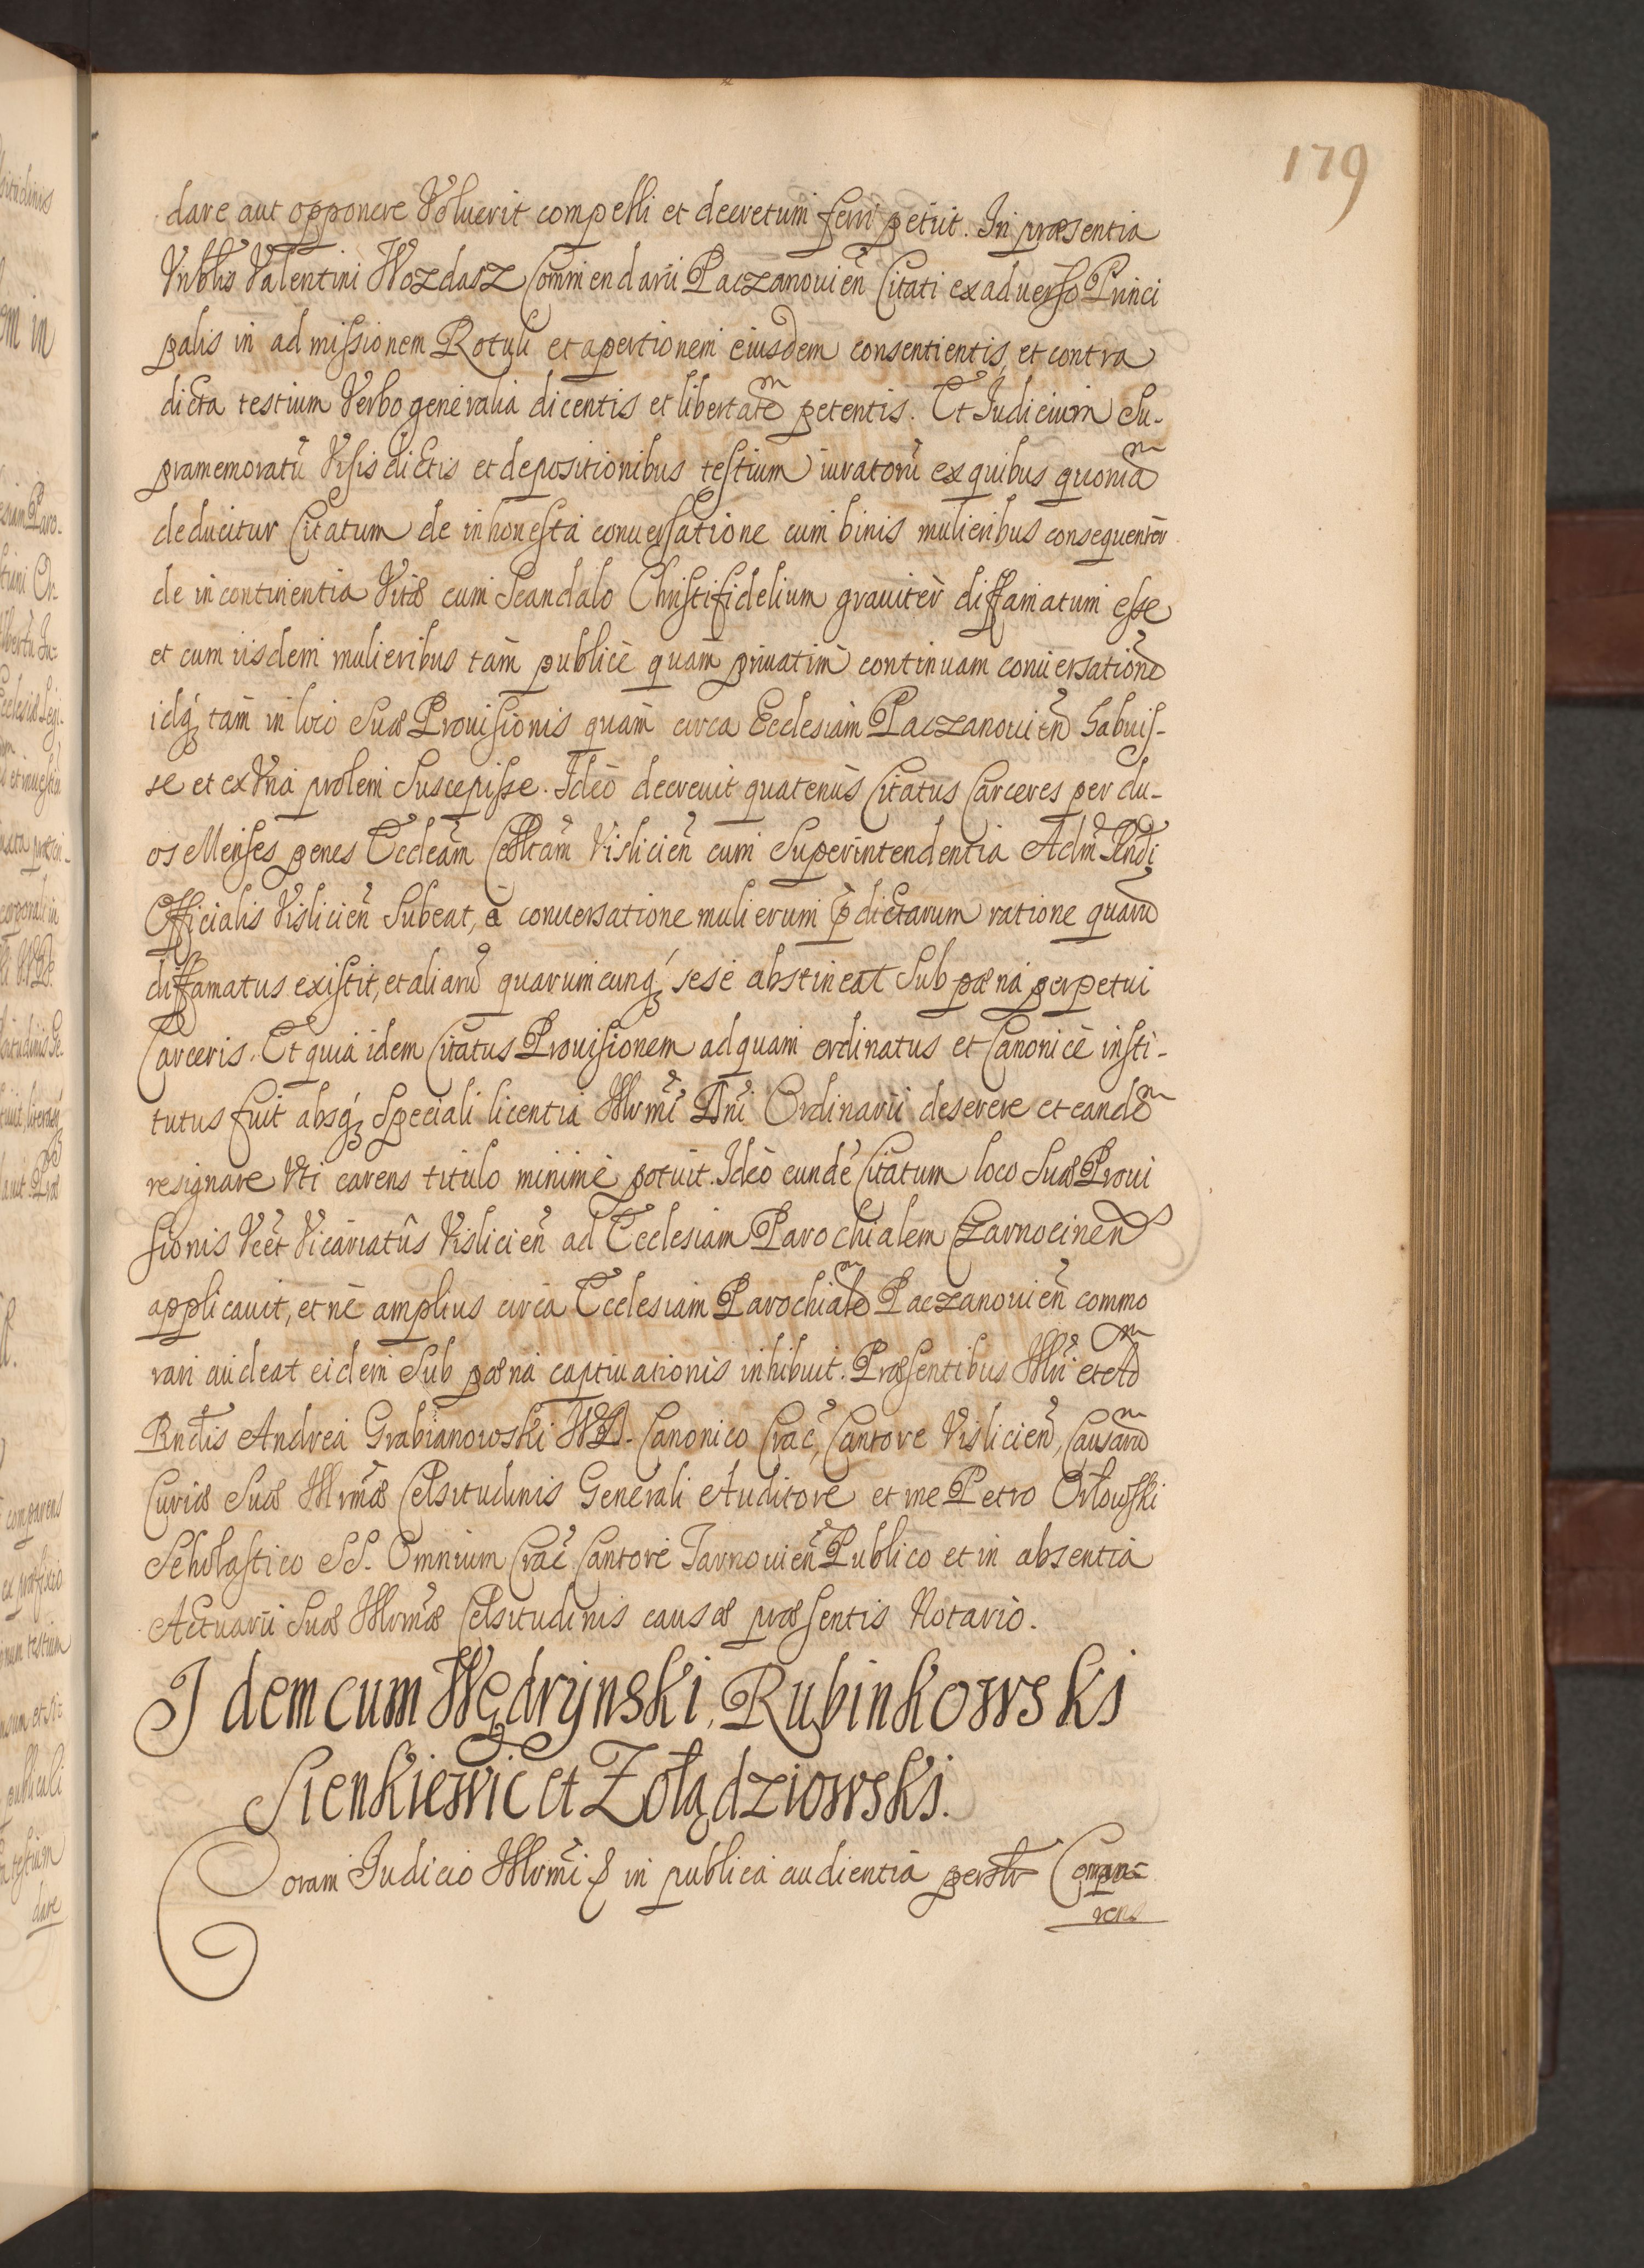 179
dare aut opponere Voluerit compelli et decretum ferri petiit. In præsentia
Vnblis Valentini Wozdasz Commendarii Paczanouien̄ Citati ex aduerso Princi
palis in admissionem Rotuli et apertionem eiusdem consentientis, et contra
dicta testium Verbo generalia dicentis et libertatem petentis. Et Iudicium Su-
pramemoratū Visis dictis et depositionibus testium iuratorū ex quibus quoniam
deducitur Citatum de inhonesta conuersatione cum binis mulieribus consequentèr
de incontinentia Vitæ cum Scandalo Christifidelium grauitèr diffamatum esse
et cum iisdem mulieribus tàm publicè quàm priuatim continuam conuersationē
idq́ tàm in loco Suæ Prouisionis quàm circa Ecclesiam Paczanouien̄ habuis-
se et ex Vna prolem Suscepisse. Ideò decreuit quatenùs Citatus Carceres per du-
os Menses penes Eccleām Colltam̄ Vislicien̄ cum Superintendentia Adm̄ Rndi
Officialis Vislicien̄ Subeat, à conuersatione mulierum p̄dictarum ratione quarū
diffamatus existit, et aliarū quarumcunq́ sese abstineat Sub pæna perpetui
Carceris. Et quia idem Citatus Prouisionem ad quam ordinatus et Canonicè insti-
tutus fuit absq́ Speciali licentia Illrmi Dn̄i Ordinarii deserere et eandem
resignare Vti carens titulo minimè potuit. Ideò eundē Citatum loco Suæ Proui
sionis Vēt Vicariatûs Vislicien̄ ad Ecclesiam Parochialem Czarnocinen̄
applicauit, et nè amplius circa Ecclesiam Parochialem Paczanouien̄ commo
rari audeat eidem Sub pæna captiuationis inhibuit. Præsentibus Illri et Adm
Rndis Andrea Grabianowski IVD. Canonico Crac̄, Cantore Vislicien̄, Causarum
Curiæ Suæ Illrmæ Celsitudinis Generali Auditore et me Petro Orłowski
Scholastico SS. Omnium Crac̄ Cantore Tarnouien̄ Publico et in absentia
Actuarii Suæ Illrmæ Celsitudinis causæ præsentis Notario.
Idem cum Wędrynski, Rubinkowski
Sienkiewic et Zołądziowski.
Coram Iudicio Illrmi & in publica audientia personalr Compa=
rens